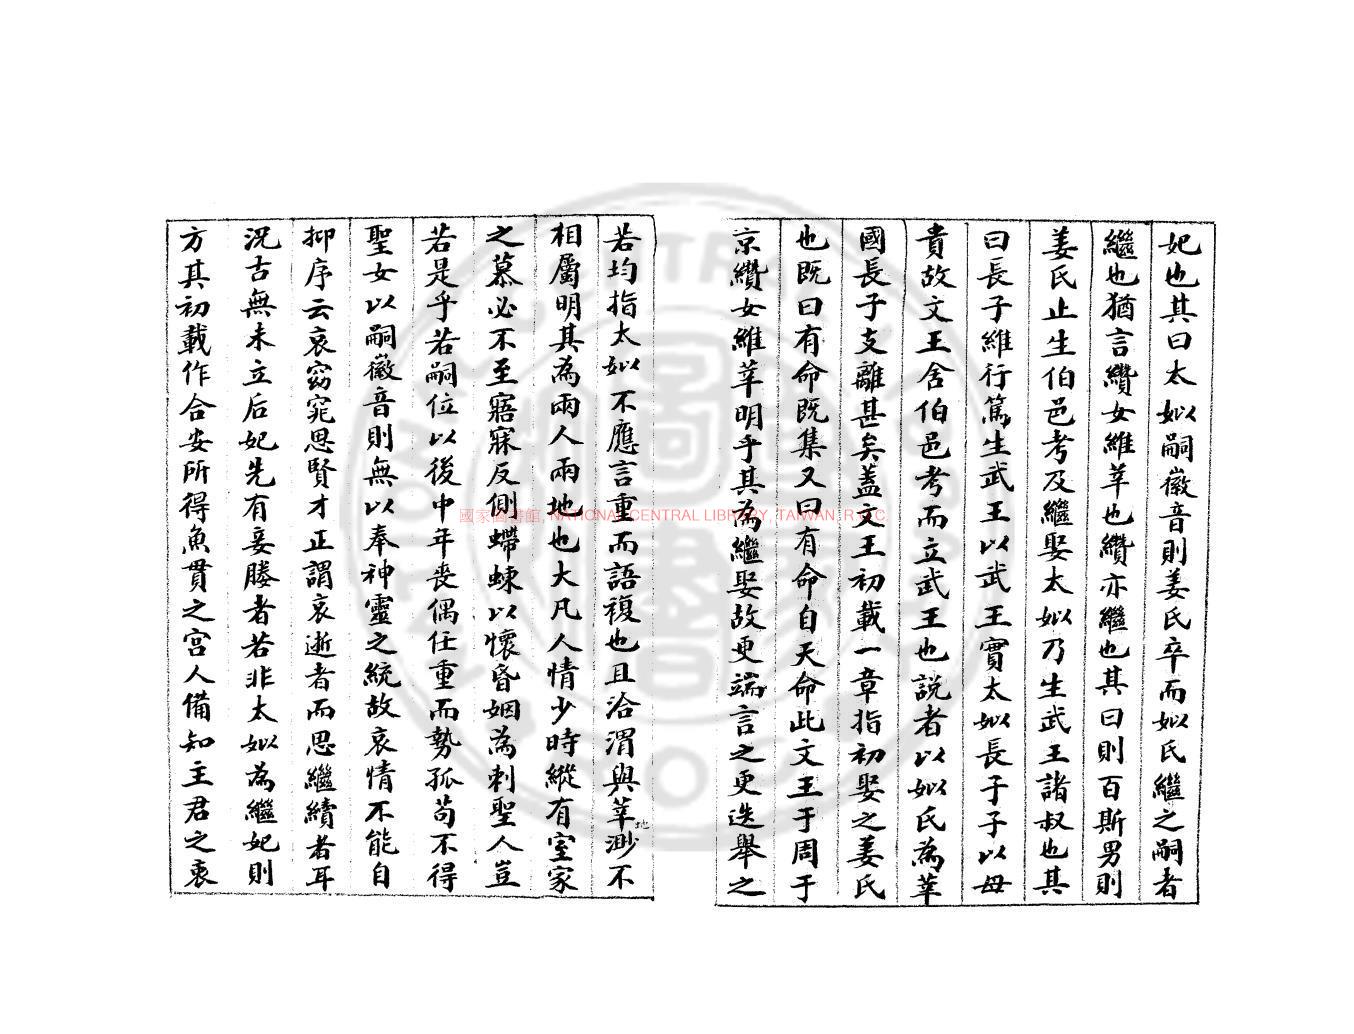 妃也其曰太姒嗣徽音則姜氏卒而姒氏繼之嗣者
繼也猶言纘女維莘也纘亦繼也其曰則百斯男則
姜氏止生伯邑考及繼娶太姒乃生武王諸叔也其
曰長子維行篤生武王以武王實太姒長子子以母
貴故文王舍伯邑考而立武王也說者以姒氏為莘
國長子支離甚矣蓋文王初載一章指初娶之姜氏
也既曰有命既集又曰有命自天命此文王于周于
京纘女維莘明乎其為繼娶故更端言之更迭舉之
若均指太姒不應言重而語複也且洽渭與莘地渺不
相屬明其為兩人兩地也大凡人情少時縱有室家
之慕必不至寤寐反側蝃蝀以懷昏姻為刺聖人豈
若是乎若嗣位以後中年喪偶任重而勢孤苟不得
聖女以嗣徽音則無以奉神靈之統故哀情不能自
抑序云哀窈窕思賢才正謂哀逝者而思繼續者耳
況古無未立后妃先有妾媵者若非太姒為繼妃則
方其初載作合安所得魚貫之宮人備知主君之衷
國家圖書館, NATIONAL CENTRAL LIBRARY, TAIWAN, R.O.C.